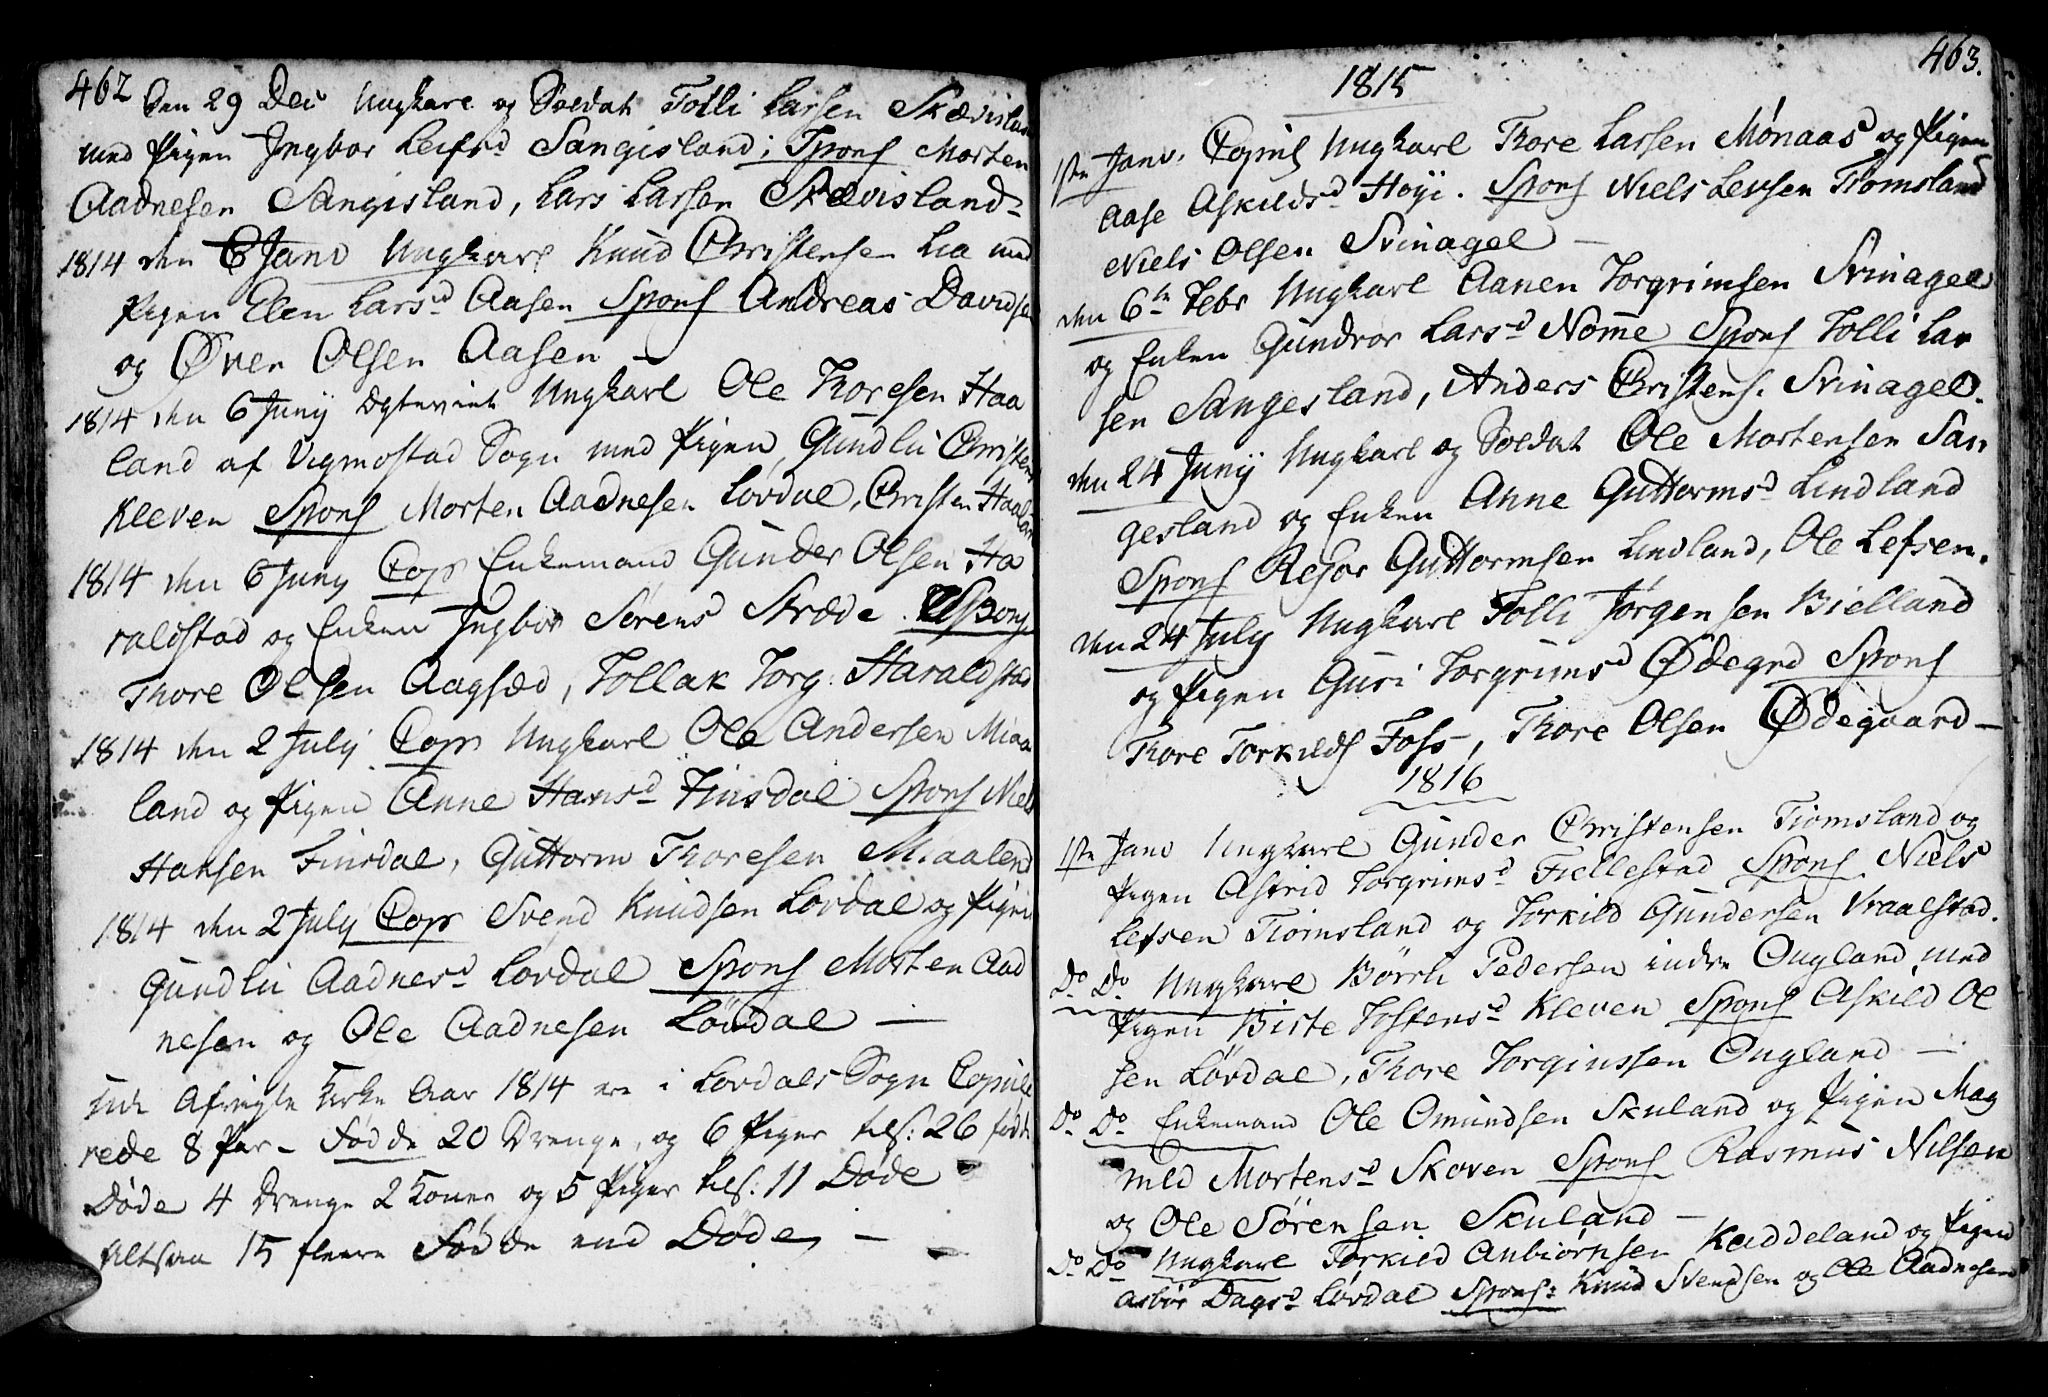 462
Den 29 Dec Ungkarl og Soldat Tolli Larsen Skævisland
med Pigen Ingbor Leifsd Sangisland; Spons Morten
Aadnesen Sangisland, Lars Larsen Skævisland-
1814 den 6 Janv Ungkarl Knud Christensen Lia med
Pigen Elen Larsd Aasen Spons Andreas Davidsen
og Øven Olsen Aasen —
1814 den 6 Junij Ungkarl Ole Thoresen Haa
land af Vigmostad Sogn med Pigen Gundlu Christens
Kleven Spons Morten Aadnesen Lovdal, Christen Haaland
1814 den 6 Juny Cop Enkemand Gunder Olsen Ha
raldstad og Enken Ingbor Sørens Stræde. Spons
Thore Olsen Aagsæd, Tollak Torg: Haraldstad
1814 den 2 July Cop Ungkarl Ole Andersen Miaa
land og Pigen Anne Hansd Finsdal Spons Niels
Hansen Finsdal, Guttorm Thoresen Miaaland
1814 den 2 July Cop Svend Knudsen Lovdal og Pigen
Gundlu Aadnesd Lovdal Spons Morten Aad
nesen og Ole Aadnesen Løvdal —
Udi Afvigte Kirke Aar 1814 ere i Lovdals Sogn Copule
rede 8 Par - Fødde 20 Drenge, og 6 Piger tils: 26 fødde
Døde 4 Drenge 2 Koner og 5 Piger tils: 11 Døde
Altsaa 15 fleere Fødde end Døde, —
463.
1815
1ste Janv. Copul Ungkarl Thore Larsen Mønaas og Pigen
Aase Askildsd Høye. Spons Niels Levsen Tiomsland
Niels Olsen Svinagel —
den 6te Febr Ungkarl Aanen Torgrimsen Svinagel
og Enken Gundror Larsd Nome Spons Tolli Lar
sen Sangesland, Anders Christens. Svinagel.
den 24 Junij Ungkarl og Soldat Ole Mortensen San
gesland og Enken Anne Guttormsd Lindland
Spons Rejor Guttormsen Lindland, Ole Lefsen.
den 24 July Ungkarl Tolli Jørgensen Bielland
og Pigen Guri Torgrimsd Ødegrd Spons
Thore Torkilds Foss, Thore Olsen Ødegaard —
1816
1ste Janv Ungkarl Gunder Christensen Tiomsland og
Pigen Astrid Torgrimsd Fiellestad Spons Niels
Lefsen Tiomsland og Torkild Gundersen Vraalstad.
Do Do Ungkarl Børili Pedersen indre Øugland med
Pigen Birte Tostensd Kleven Spons Askild Ol
sen Løvdal, Thore Torginssen Øugland —
Do Do Enkemand Ole Omundsen Skuland og Pigen Mag
nild Mortensd Skoven Spons Rasmus Nilsen
og Ole Sørensen Skuland —
Do Do Ungkarl Torkild Anbiørnsen Kaddeland og Pigen
Asbør Dagsd Løvdal Spons: Knud Svendsen og Ole Aadnesen